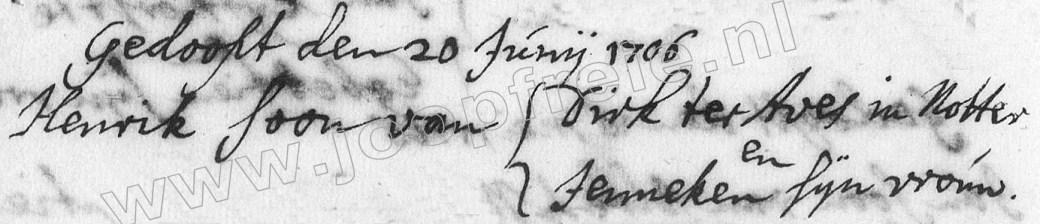 Gedooft den 20 Junij 1706
Henrik soon van { Dirk ter Aves in Notter
en
{ Jenneken sijn vrouw.
www.joopfreie.nl